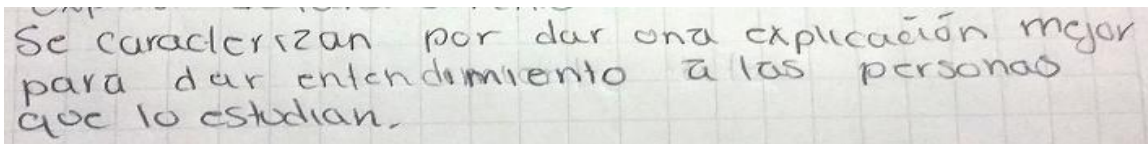 Se caracterizan por dar una explicación mejor
para dar entendimiento a las personas
que lo estudian.